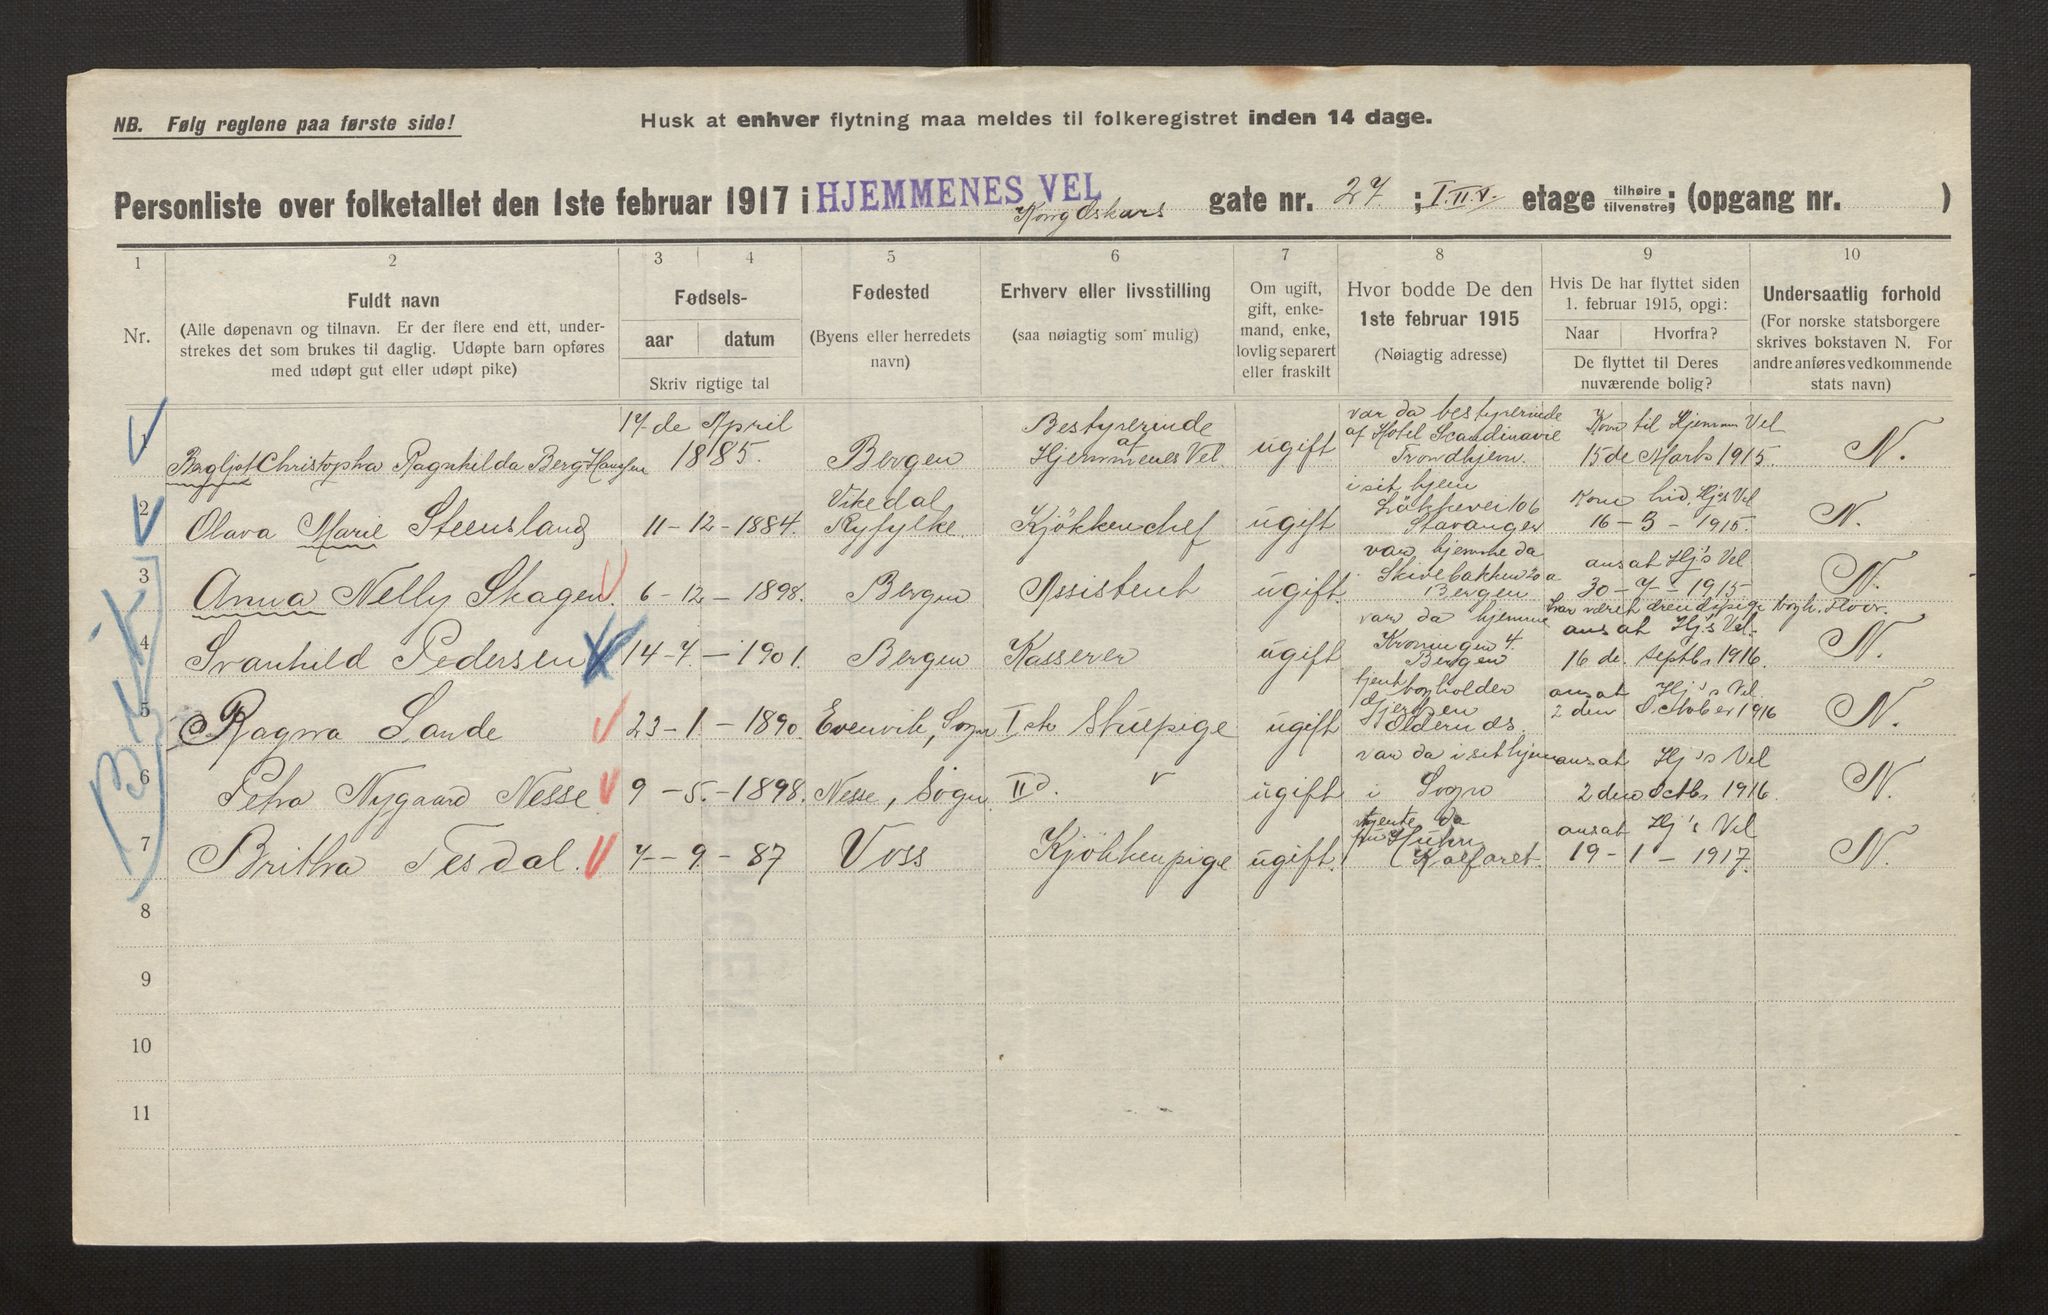 NB. Følg reglene paa første side!
Husk at enhver flytning maa meldes til folkeregistret inden 14 dage.
Personliste over folketallet den 1ste februar 1917 i HJEMMENES VEL Kong Oskars gate nr. 27 ; I. II. V. etage tilhøire tilvenstre; (opgang nr. )
1 2 3 4 5 6 7 8 9 10
Nr.
Fuldt navn
(Alle døpenavn og tilnavn. Er der flere end ett, under-
strekes det som brukes til daglig. Udøpte barn opføres
med udøpt gut eller udøpt pike)
Fødsels-
aar datum
Skriv rigtige tal
Fødested
(Byens eller herredets
navn)
Erhverv eller livsstilling
(saa nøiagtig som mulig)
Om ugift,
gift, enke-
mand, enke,
lovlig separert
eller fraskilt
Hvor bodde De den
1ste februar 1915
(Nøiagtig adresse)
Hvis De har flyttet siden
1. februar 1915, opgi:
Naar Hvorfra?
De flyttet til Deres
nuværende bolig?
Undersaatlig forhold
(For norske statsborgere
skrives bokstaven N. For
andre anføres vedkommende
stats navn)
1
Bergljot Christopha Ragnhilda Berg Hansen
17de April
1885.
Bergen
Bestyrerinde
af
Hjemmenes Vel.
ugift
var da bestyrerinde
af Hotel Scandinavie
Trondhjem.
Kom til Hjemmen Vel
15de Marts 1915.
N.
2
Olava Marie Steensland
11-12-1884.
Vikedal
Ryfylke.
Kjökkenchef
ugift
i sit hjem
Lökkevei 106
Stavanger
Kom hid. Hj's Vel
16-3-1915.
N.
3
Anna Nelly Skagen.
6-12-1898.
Bergen
Assistent
ugift.
var hjemme da
Skivebakken 20 a
Bergen
ansat Hj's Vel
30-7-1915
N.
4
Svanhild Pedersen
14-7-1901.
Bergen
Kasserer
ugift
var da hjemme
Kroningen 4.
Bergen
ansat Hj's Vel.
16 de. Septbr 1916.
N.
5
Ragna Sande
23-1-1890.
Evenvik, Sogn
I ste Stuepige
ugift
ansat Hj's Vel.
2 den October 1916
N.
6
Petra Nygaard Nesse.
9-5-1898.
Nesse, Sogn.
II d.
ugift
var da i sit hjem
i Sogn
ansat Hj's Vel
2 den Octbr 1916.
N.
7
Britha Tesdal.
7-9-87
Voss
Kjökkenpige
ugift.
tjente da
Kalfaret.
ansat Hj's Vel
19-1-1917.
N.
8
9
10
11